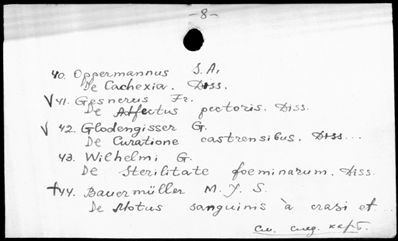 -8-
40. Oppermannus S. A.
De Cachexia. Diss.
V41. Gesnerus Fr.
De Affectus pectoris. Diss.
V 42. Glodengisser G.
De Curatione castrensibus. Diss...
43. Wilhelmi G.
De Sterilitate foeminarum. Diss.
+44. Bauermüller M. J. S.
De Motus sanguinis à crasi et...
См. след. карт.